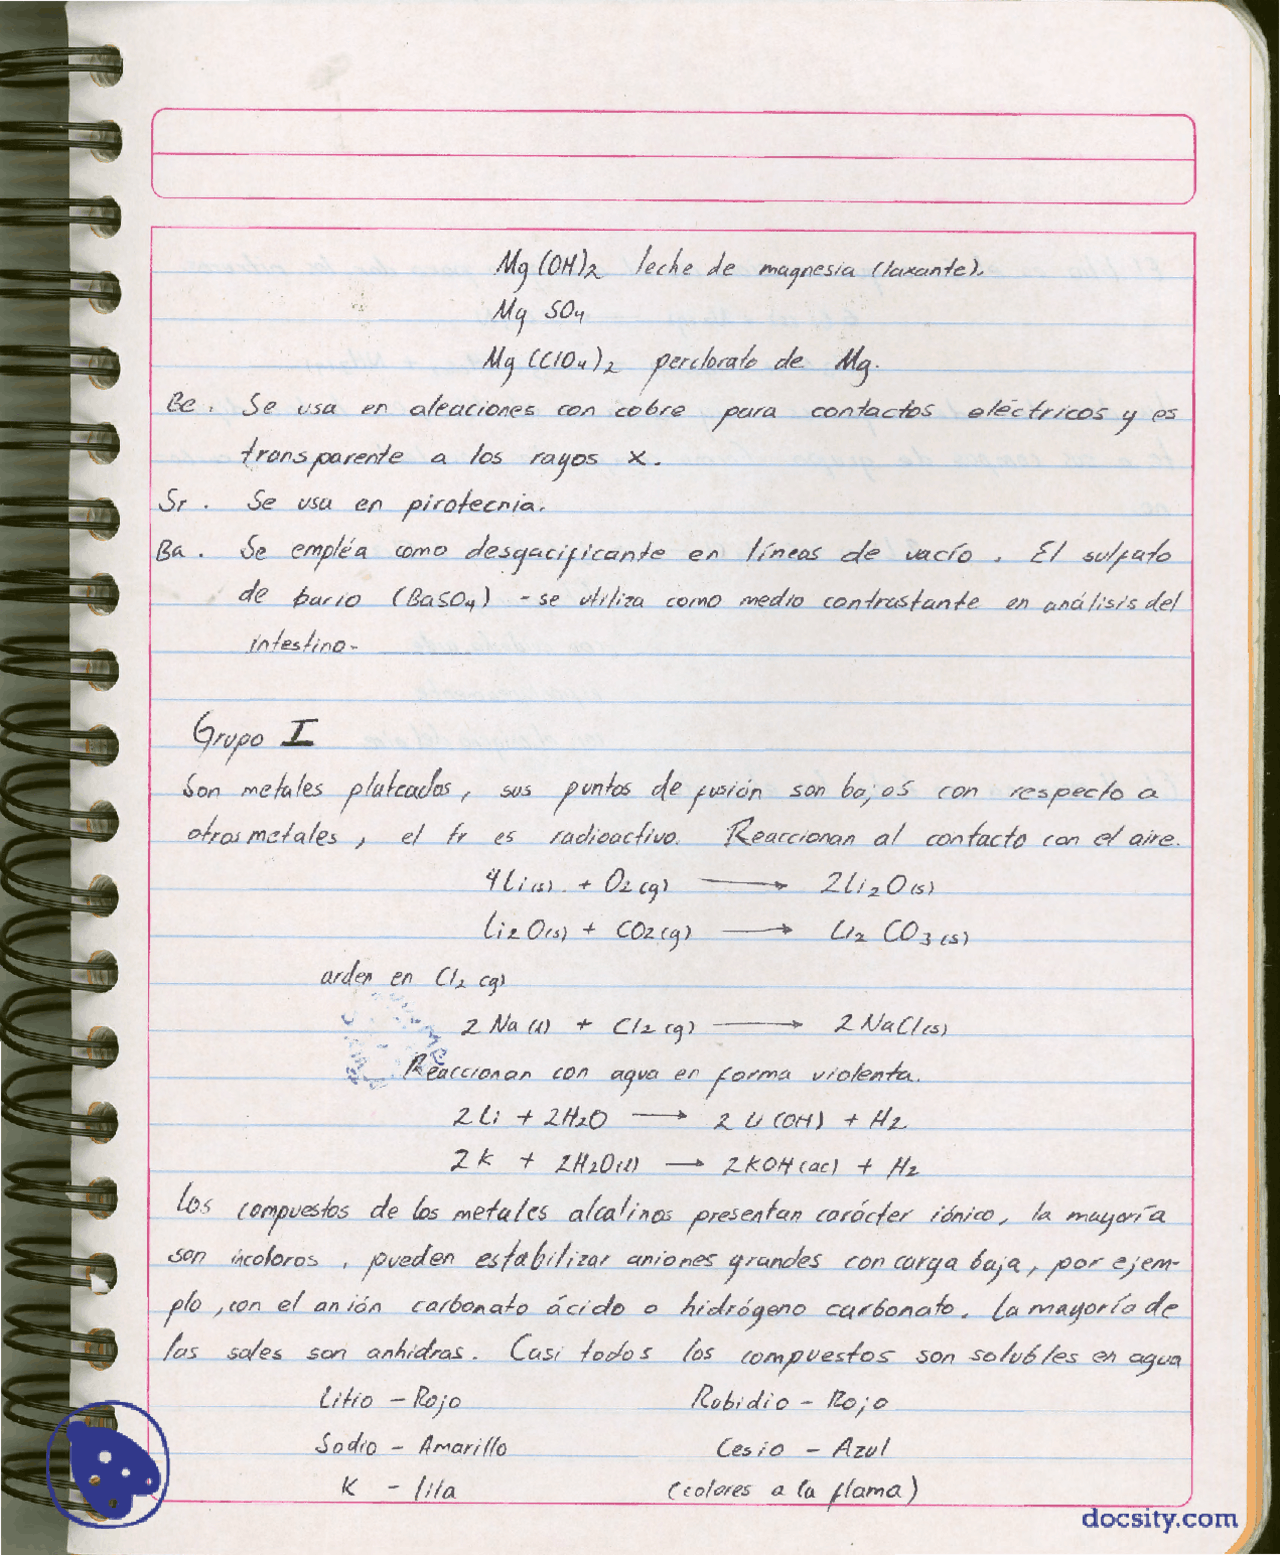 Mg(OH)2 leche de magnesia (laxante).
Mg SO4
Mg (ClO4)2 perclorato de Mg.
Be. Se usa en aleaciones con cobre para contactos eléctricos y es
transparente a los rayos x.
Sr. Se usa en pirotecnia.
Ba. Se empléa como desgacificante en líneas de vacío. El sulfato
de bario (BaSO4) - se utiliza como medio contrastante en análisis del
intestino-
Grupo I
Son metales plateados, sus puntos de fusión son bajos con respecto a
otros metales, el fr es radioactivo. Reaccionan al contacto con el aire.
4Li(s) + O2(g) ⟶ 2Li2O(s)
Li2O(s) + CO2(g) ⟶ Li2 CO3(s)
arden en Cl2 (g)
2 Na (l) + Cl2 (g) ⟶ 2 NaCl(s)
Reaccionan con agua en forma violenta.
2Li + 2H2O ⟶ 2 Li(OH) + H2
2K + 2H2O(l) ⟶ 2KOH(ac) + H2
Los compuestos de los metales alcalinos presentan carácter iónico, la mayoría
son incoloros, pueden estabilizar aniones grandes con carga baja, por ejem-
plo, con el anión carbonato ácido o hidrógeno carbonato. La mayoría de
las sales son anhidras. Casi todos los compuestos son solubles en agua
Litio - Rojo Rubidio - Rojo
Sodio - Amarillo Cesio - Azul
K - lila (colores a la flama)
docsity.com